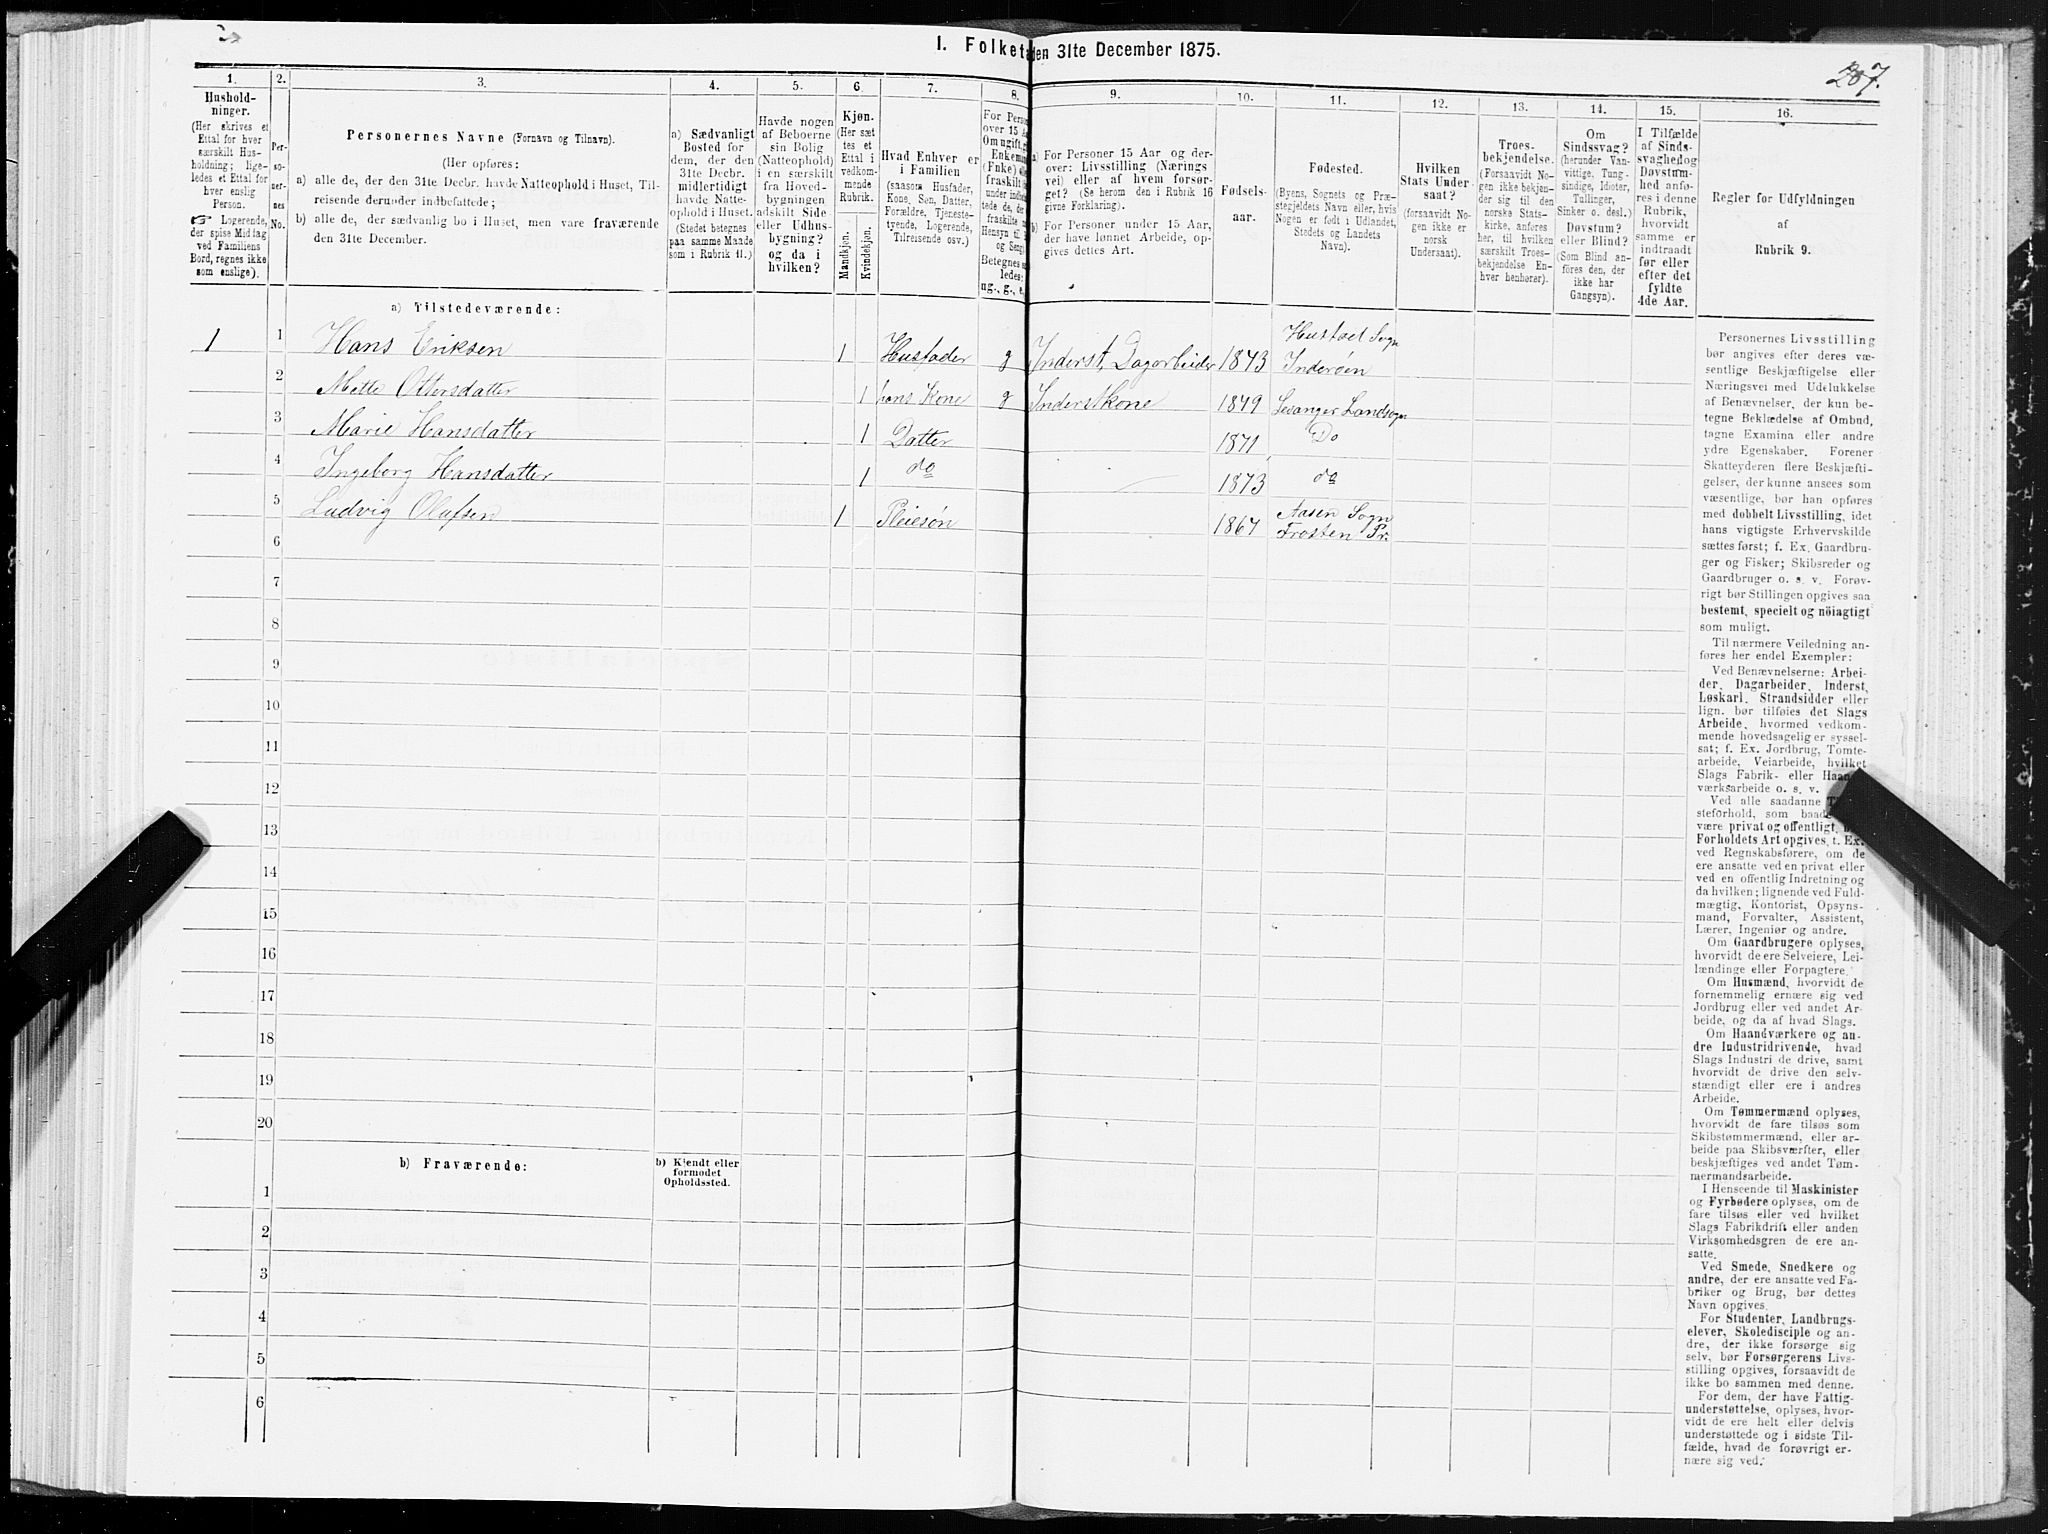 I. Folketæ den 31te December 1875.
207.
1.
2.
3.
4.
5.
6.
7.
8.
9.
10.
11.
12.
13.
14.
15.
16.
Hushold-
ninger.
(Her skrives et
Ettal for hver
særskilt Hus-
holdning; lige-
ledes et Ettal for
hver enslig
Person.
☞ Logerende,
der spise Middag
ved Familiens
Bord, regnes ikke
som enslige).
Per-
so-
ner-
nes
No.
Personernes Navne (Fornavn og Tilnavn).
(Her opføres:
a) alle de, der den 31te Decbr. havde Natteophold i Huset, Til-
reisende derunder indbefattede;
b) alle de, der sædvanlig bo i Huset, men vare fraværende
den 31te December.
a) Sædvanligt
Bosted for
dem, der den
31te Decbr.
midlertidigt
havde Natte-
ophold i Huset.
(Stedet betegnes
paa samme Maade
som i Rubrik 11.)
Havde nogen
af Beboerne
sin Bolig
(Natteophold)
i en særskilt
fra Hoved-
bygningen
adskilt Side-
eller Udhus-
bygning?
og da i
hvilken?
Kjøn.
(Her sæt-
tes et
Ettal i
vedkom-
mende
Rubrik.
Mandkjøn.
Kvindekjøn.
Hvad Enhver er
i Familien
(saasom Husfader,
Kone, Søn, Datter,
Forældre, Tjeneste-
tyende, Logerende,
Tilreisende osv.)
For Perso
over 15 Aa
Om ugift, gi
Enkeman
(Enke) el
fraskilt
under indbe
tede de, de
fraskilte
Hensyn til B
og Seng
Betegnes saa
ledes:
ug., g., e.
a) For Personer 15 Aar og der-
over: Livsstilling (Nærings
vei) eller af hvem forsør-
get? (Se herom den i Rubrik 16
givne Forklaring).
b) For Personer under 15 Aar,
der have lønnet Arbeide, op-
gives dettes Art.
Fødsels-
aar.
Fødested.
(Byens, Sognets og Præ-
stegjeldets Navn eller, hvis
Nogen er født i Udlandet,
Stedets og Landets
Navn).
Hvilken
Stats Under-
saat?
(forsaavidt No-
gen ikke er
norsk
Undersaat).
Troes-
bekjendelse.
(Forsaavidt No-
gen ikke bekjen-
der sig til den
norske Stats-
kirke, anføres
her, til hvilken
særskilt Troes-
bekjendelse En-
hver henhører).
Om
Sindssvag?
(herunder Van-
vittige, Tung-
sindige, Idioter,
Tullinger,
Sinker o. desl.)
Døvstum?
eller Blind?
(Som Blind an-
føres den, der
ikke har
Gangsyn).
I Tilfælde
af Sinds-
svaghed og
Døvstum-
hed anfø-
res i denne
Rubrik,
hvorvidt
samme er
indtraadt
før eller
efter det
fyldte
4de Aar.
Regler for Udfyldningen
af
Rubrik 9.
a) Tilstedeværende:
1 1 Hans Eriksen 1 Husfader g Inderst, Dagarbeider 1843 Hustad Sogn
Inderøen
2 Mette Ottersdatter 1 hans Kone g Inderstkone 1849 Levanger Landsogn
3 Marie Hansdatter 1 Datter 1871 Do
4 Ingeborg Hansdatter 1 do 1873 do
5 Ludvig Olafsen 1 Pleiesøn 1867 Aasen Sogn
Frosten Pr.
6
7
8
9
10
11
12
13
14
15
16
17
18
19
20
b) Fraværende:
b) Kjendt eller
formodet
Opholdssted.
1
2
3
4
5
6
Personernes Livsstilling
bør angives efter deres væ-
sentlige Beskjæftigelse eller
Næringsvei med Udelukkelse
af Benævnelser, der kun be-
tegne Beklædelse af Ombud,
tagne Examina eller andre
ydre Egenskaber. Forener
Skatteyderen flere Beskjæfti-
gelser, der kunne ansees som
væsentlige, bør han opføres
med dobbelt Livsstilling, idet
hans vigtigste Erhvervskilde
sættes først; f. Ex. Gaardbru-
ger og Fisker; Skibsreder og
Gaardbruger o. s. v. Forøv-
rigt bør Stillingen opgives saa
bestemt, specielt og nöiagtigt
som muligt.
Til nærmere Veiledning an-
føres her endel Exempler:
Ved Benævnelserne: Arbei-
der, Dagarbeider, Inderst,
Løskarl, Strandsidder eller
lign. bør tilføies det Slags
Arbeide, hvormed vedkom-
mende hovedsagelig er syssel-
sat; f. Ex. Jordbrug, Tomte-
arbeide, Veiarbeide, hvilket
Slags Fabrik- eller Haand-
værksarbeide o. s. v.
Ved alle saadanne
steforhold, som baade
være privat og offentligt,
Forholdets Art opgives, t. Ex.
ved Regnskabsførere, om de
ere ansatte ved en privat eller
ved en offentlig Indretning og
da hvilken; lignende ved Fuld-
mægtig, Kontorist, Opsyns-
mand, Forvalter, Assistent,
Lærer, Ingeniør og andre.
Om Gaardbrugere oplyses,
hvorvidt de ere Selveiere, Lei-
lændinge eller Forpagtere.
Om Husmænd, hvorvidt de
fornemmelig ernære sig ved
Jordbrug eller ved andet Ar-
beide, og da af hvad Slags.
Om Haandværkere og an-
dre Industridrivende, hvad
Slags Industri de drive, samt
hvorvidt de drive den selv-
stændigt eller ere i andres
Arbeide.
Om Tømmermænd oplyses,
hvorvidt de fare tilsøs som
Skibstømmermænd, eller ar-
beide paa Skibsværfter, eller
beskjæftiges ved andet Tøm-
mermandsarbeide.
I Henseende til Maskinister
og Fyrbødere oplyses, om de
fare tilsøs eller ved hvilket
Slags Fabrikdrift eller anden
Virksomhedsgren de ere an-
satte.
Ved Smede, Snedkere og
andre, der ere ansatte ved Fa-
briker og Brug, bør dettes
Navn opgives.
For Studenter, Landbrugs-
elever, Skoledisciple og an-
dre, der ikke forsørge sig
selv, bør Forsørgerens Livs-
stilling opgives, forsaavidt de
ikke bo sammen med denne.
For dem, der have Fattig-
understøttelse, oplyses, hvor-
vidt de ere helt eller delvis
understøttede og i sidste Til-
fælde, hvad de forøvrigt er-
nære sig ved.